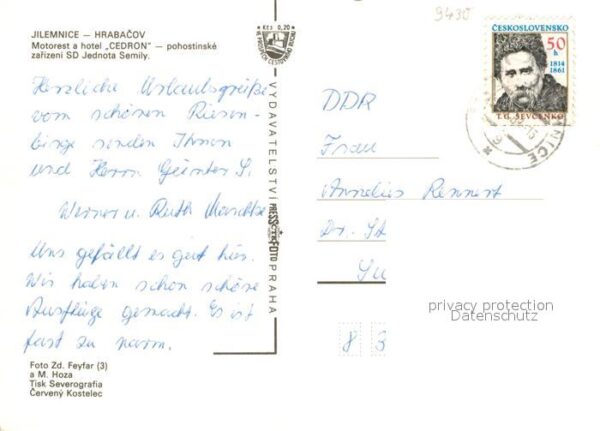 JILEMNICE — HRABAČOV
Motorest a hotel „CEDRON" — pohostinské
zařízení SD Jednota Semily.
Kčs 0,20
Herzliche Urlaubsgrüße
vom schönen Riesen-
birge senden Ihnen
und Herrn Günter S.
Werner u. Ruth
Uns gefällt es gut hier.
Wir haben schon schöne
Ausflüge gemacht. Es ist
fast zu warm.
Foto Zd. Feyfar (3)
a M. Hoza
Tisk Severografia
Červený Kostelec
VYDAVATELSTVÍ PRESSFOTO PRAHA
9430
ČESKOSLOVENSKO
50
h
1814
1861
T. G. ŠEVČENKO
NICE
DDR
Frau
Annelies Rennert
Dr. St
Su
privacy protection
Datenschutz
8 3